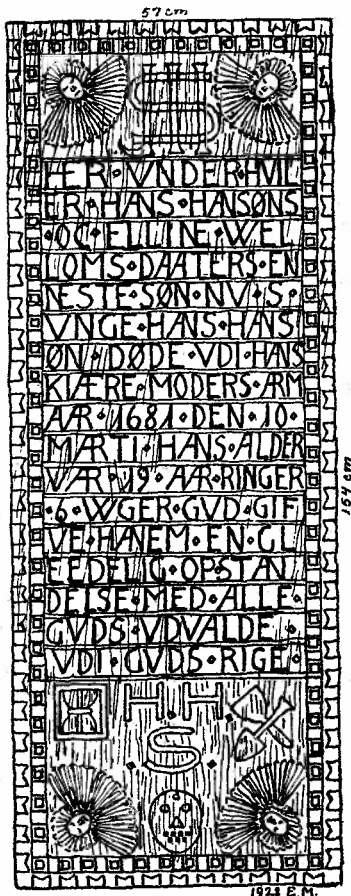 57 cm
HER · VNDER · HVIL
ER · HANS · HANSØNS
· OC · ELLINE · WEL
LOMS · DAATERS · EN
NESTE · SØN · NV · S ·
VNGE · HANS · HANS
ØN · DØDE · VDI · HANS
KIÆRE · MODERS · ARM
AAR · 1681 · DEN · 10 ·
MARTI · HANS · ALDER
VAR · 19 · AAR · RINGER
· 6 · WGER · GVD · GIF
VE · HANEM · EN · GL
EEDELIG · OPSTAN
DELSE · MED · ALLE ·
GVDS · VDVALDE ·
VDI · GVDS · RIGE ·
154 cm
H H
S
1928 E.M.